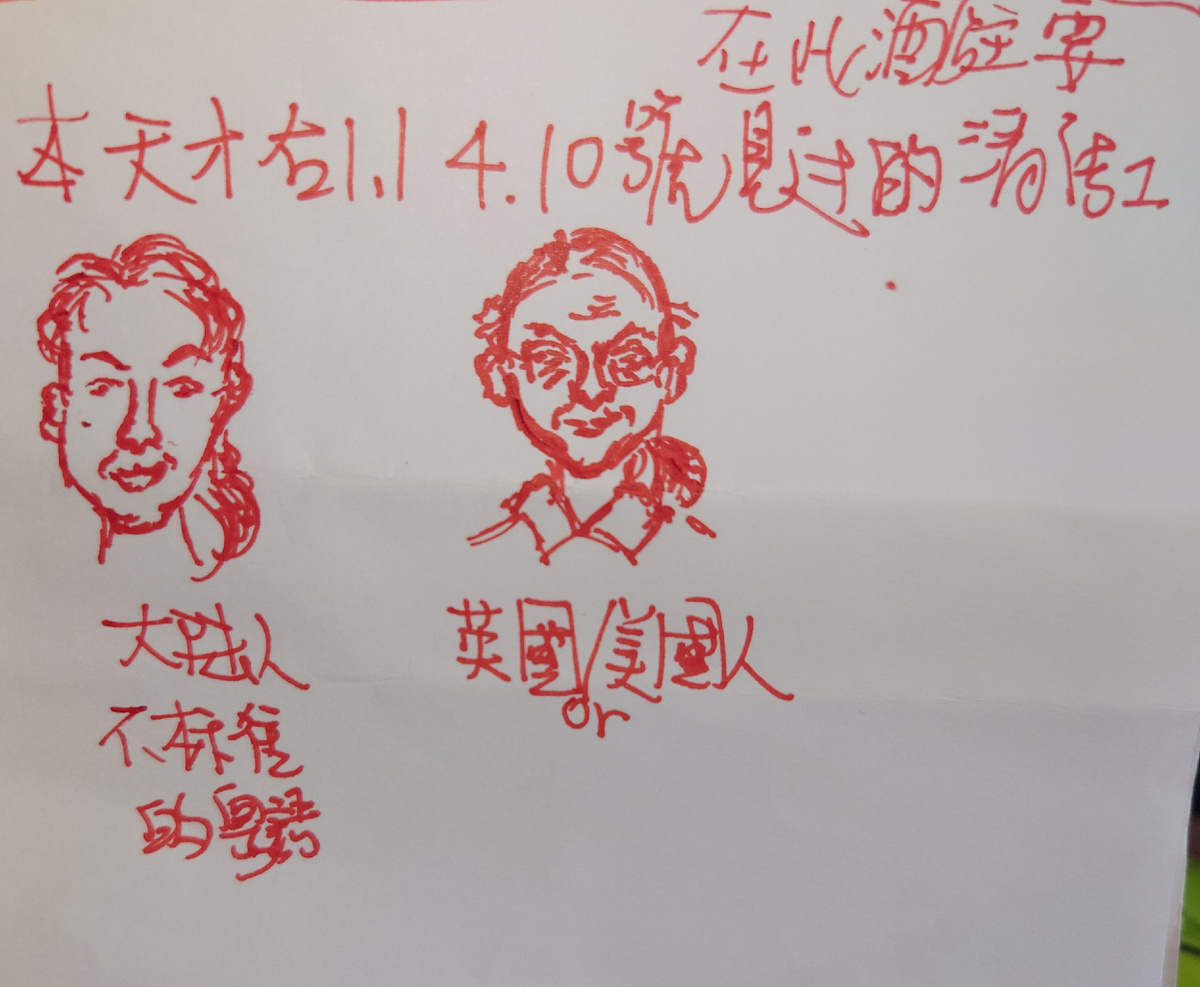 在此酒店要
本天才右1.1 4.10號見过的清洁工
大陸人
英國/美國人
or
不标准
的粵語